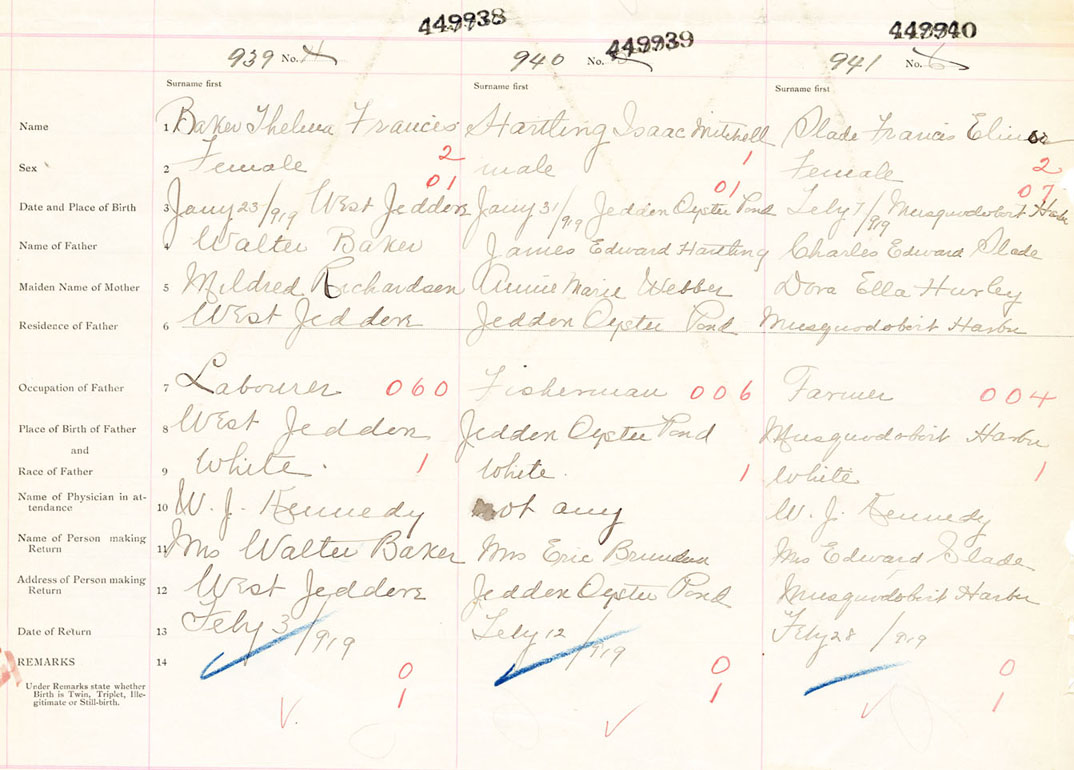 449938 449939 449940
939 No. 4 940 No. 941 No. 6
Surname first Surname first Surname first
Name 1 Baker Thelma Frances Hartling Isaac Mitchell Slade Francis Elinor
Sex 2 Female 2 male 1 Female 2
01 01 07
Date and Place of Birth 3 Jany 23/919 West Jeddore Jany 31/919 Jeddore Oyster Pond Feby 7/919 Musquodoboit Harbor
Name of Father 4 Walter Baker James Edward Hartling Charles Edward Slade
Maiden Name of Mother 5 Mildred Richardson Annie Marie Webber Dora Ella Hurley
Residence of Father 6 West Jeddore Jeddore Oyster Pond Musquodoboit Harbor
Occupation of Father 7 Labourer 060 Fisherman 006 Farmer 004
Place of Birth of Father 8 West Jeddore Jeddore Oyster Pond Musquodoboit Harbor
and
Race of Father 9 White. 1 White. 1 White 1
Name of Physician in at-
tendance 10 W. J. Kennedy not any W. J. Kennedy
Name of Person making
Return 11 Mrs Walter Baker Mrs Eric Mrs Edward Slade
Address of Person making
Return 12 West Jeddore Jeddore Oyster Pond Musquodoboit Harbor
Date of Return 13 Feby 3/919 Feby 12/919 Feby 28/919
REMARKS 14 0 0 0
Under Remarks state whether
Birth is Twin, Triplet, Ille-
gitimate or Still-birth. 1 1 1